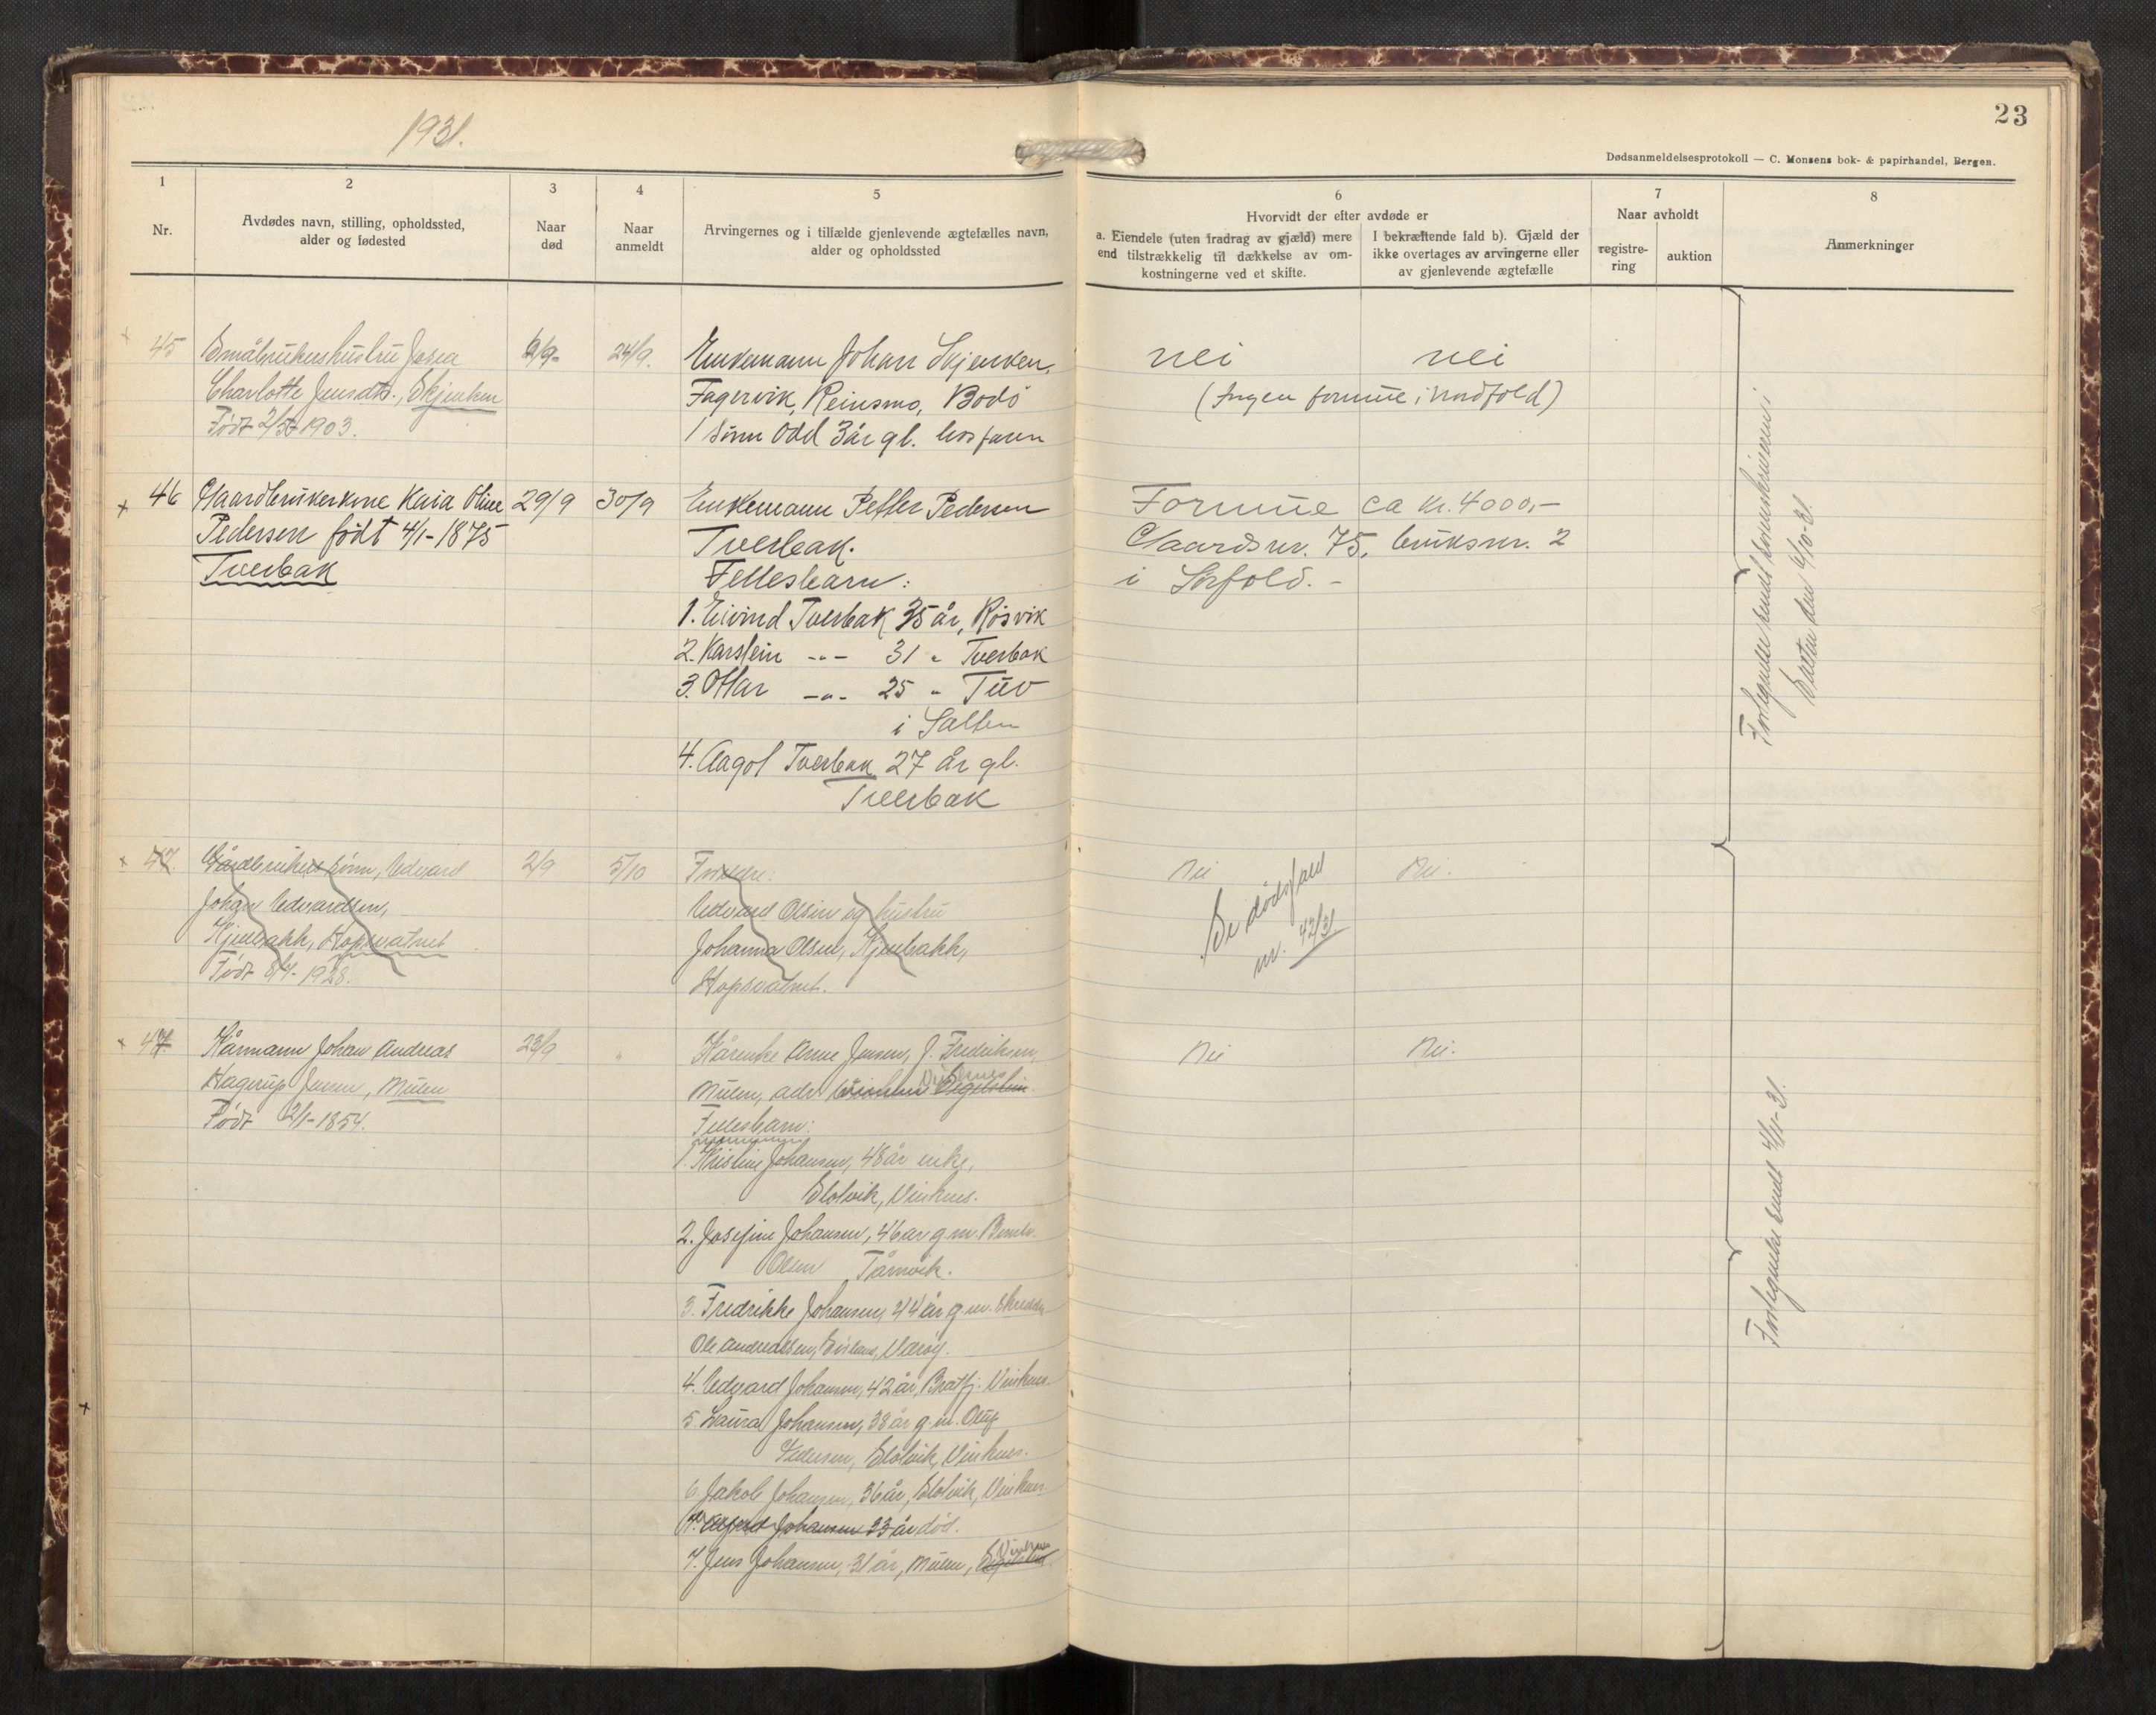 1931.
23
Dødsanmeldelsesprotokoll — C. Monsens bok- & papirhandel, Bergen.
1
2
3
4
5
6
7
8
Nr.
Avdødes navn, stilling, opholdssted,
alder og fødested
Naar
død
Naar
anmeldt
Arvingernes og i tilfælde gjenlevende ægtefælles navn,
alder og opholdssted
Hvorvidt der efter avdøde er
a. Eiendele (uten fradrag av gjæld) mere
end tilstrækkelig til dækkelse av om-
kostningerne ved et skifte.
I bekræftende fald b). Gjæld der
ikke overtages av arvingerne eller
av gjenlevende ægtefælle
Naar avholdt
registre-
ring
auktion
Anmerkninger
45
Småbrukerhustru Josea
Charlotte Jensdt., Skjenken
Født 2/5 1903.
9/9
24/9.
Enkemann Johan Skjenken,
Fagervik, Reinsmo, Bodø
1 sønn Odd 3 år gl. hos faren
nei
nei
(Ingen formue i Nordfold)
46
Gaardbrukerkone Kaia Oline
Pedersen født 4/1-1875
Tverbak
29/9
30/9
Enkemann Petter Pedersen
Tverbak.
Fellesbarn:
1. Eivind Tverbak 35 år, Røsvik
2. Karstein -"- 31 " Tverbak
3. Ottar -"- 25 " Tuv
i Salten
4. Aagot Tverbak 27 år gl.
Tverbak
Formue ca kr. 4000,-
Gaardsnr. 75, bruksnr. 2
i Sørfold.-
Fortegnelse sendt
den 4/10-31.
47.
Gårdbrukersønn, Edvard
Johan Edvardsen,
Kjelbakk, Hopsvatnet
Født 8/4-1928.
2/9
5/10
Foreldre:
Edvard Olsen og hustru
Johanna Olsen, Kjelbakk,
Hopsvatnet.
Nei
Nei.
Se dødsfald
nr. 42/31
47.
Kårmann Johan Andreas
Hagerup Jensen, Mulen
Født 2/1-1854.
23/9
"
Kårenke Anne Jensen, f. Fredriksen,
Mulen, adr. Vinkenes
Fellesbarn:
1. Kristine Johansen, 48 år enke,
Slotvik, Vinknes.
2. Josefine Johansen, 46 år g.m.
Olsen Tårnvik.
3. Fredrikke Johansen, 44 år g.m.
Ole Andreassen, Værøy.
4. Edvard Johansen, 42 år, Bratfj. Vinknes.
5. Laura Johansen, 38 år g.m. Oluf
Pedersen, Slotvik, Vinknes.
6. Jakob Johansen, 36 år, Slotvik, Vinknes
7. Alfred Johansen 33 år død.
7. Jens Johansen, 31 år, Mulen, Vinknes
Nei
Nei.
Fortegnelse sendt 4/11-31.